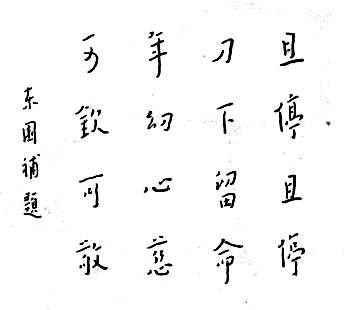 且停且停
刀下留命
年幼心慈
可欽可敬
东园補題